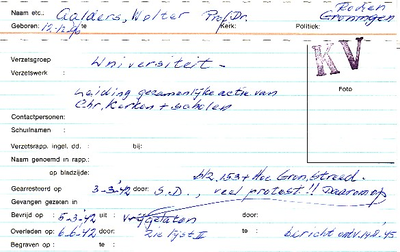 Naam etc.: Aalders, Wolter Prof. Dr. Roden Groningen
Geboren: te Kerk: Politiek:
KV
Verzetsgroep Universiteit -
Verzetswerk :
Leiding gezamenlijke actie van
Chr. Kerken + scholen
Foto
Contactpersonen:
Schuilnaam :
Verzetsrapp. ingel. dd. : bij:
Naam genoemd in rapp.:
op bladzijde: blz. 153 + Hoe Gron. streed.
Gearresteerd op 3-3-'42 door: S.D., veel protest!! Daarom op
Gevangen gezeten in
Bevrijd op : 5-3-'42 uit : vrijgelaten door: te :
Overleden op: 6-6-'42 door: zie lijst II te : bericht
Begraven op : te :